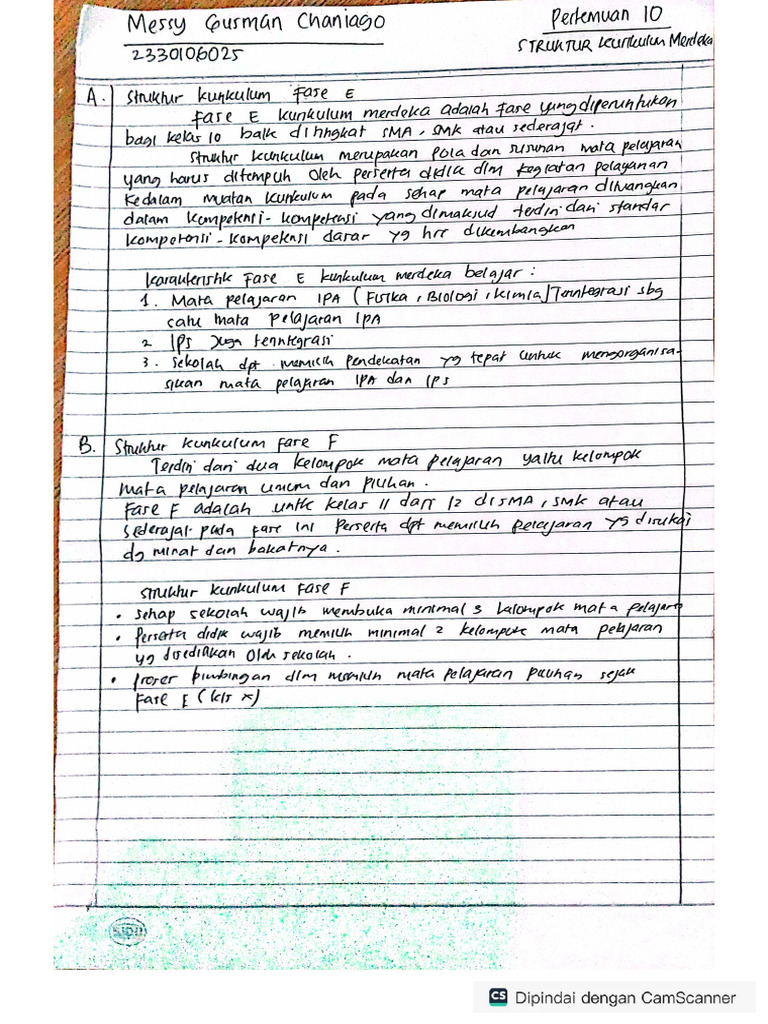 Messy Gusman Chaniago
Pertemuan 10
2330106025
STRUKTUR Kurikulum Merdeka
A. Struktur kurikulum Fase E
Fase E kurikulum merdeka adalah fase yang diperuntukan
bagi kelas 10 baik di tingkat SMA, SMK atau sederajat.
Struktur kurikulum merupakan Pola dan susunan mata pelajaran
yang harus ditempuh oleh perserta didik dlm kegiatan pelayanan
Kedalam muatan kurikulum pada setiap mata pelajaran dituangkan
dalam kompetensi-kompetensi yang dimaksud terdiri dari standar
kompotensi-kompetensi dasar yg hrr dikembangkan
Karaqteristik Fase E kurikulum merdeka belajar :
1. Mata pelajaran IPA (Fisika, Biologi, Kimia) Terintegrasi sbg
satu mata pelajaran IPA
2 IPS Juga terintegrasi
3. Sekolah dpt memilih pendekatan yg tepat untuk mengorganisa-
sikan mata pelajaran IPA dan IPS
B. Struktur kurikulum fase F
Terdiri dari dua kelompok mata pelajaran yaitu kelompok
mata pelajaran umum dan pilihan.
Fase F adalah untk kelas 11 dan 12 di SMA, SMK atau
Sederajat. pada fase ini Perserta dpt memilih pelajaran yg disukai
dg minat dan bakatnya.
Struktur kurikulum Fase F
• Setiap sekolah wajib membuka minimal 3 kelompok mata pelajaran
• Perserta didik wajib memilih minimal 2 kelompok mata pelajaran
yg disediakan oleh sekolah.
• proser bimbingan dlm memilih mata pelajaran pilihan sejak
Fase E (kls X)
SIDU
CS Dipindai dengan CamScanner